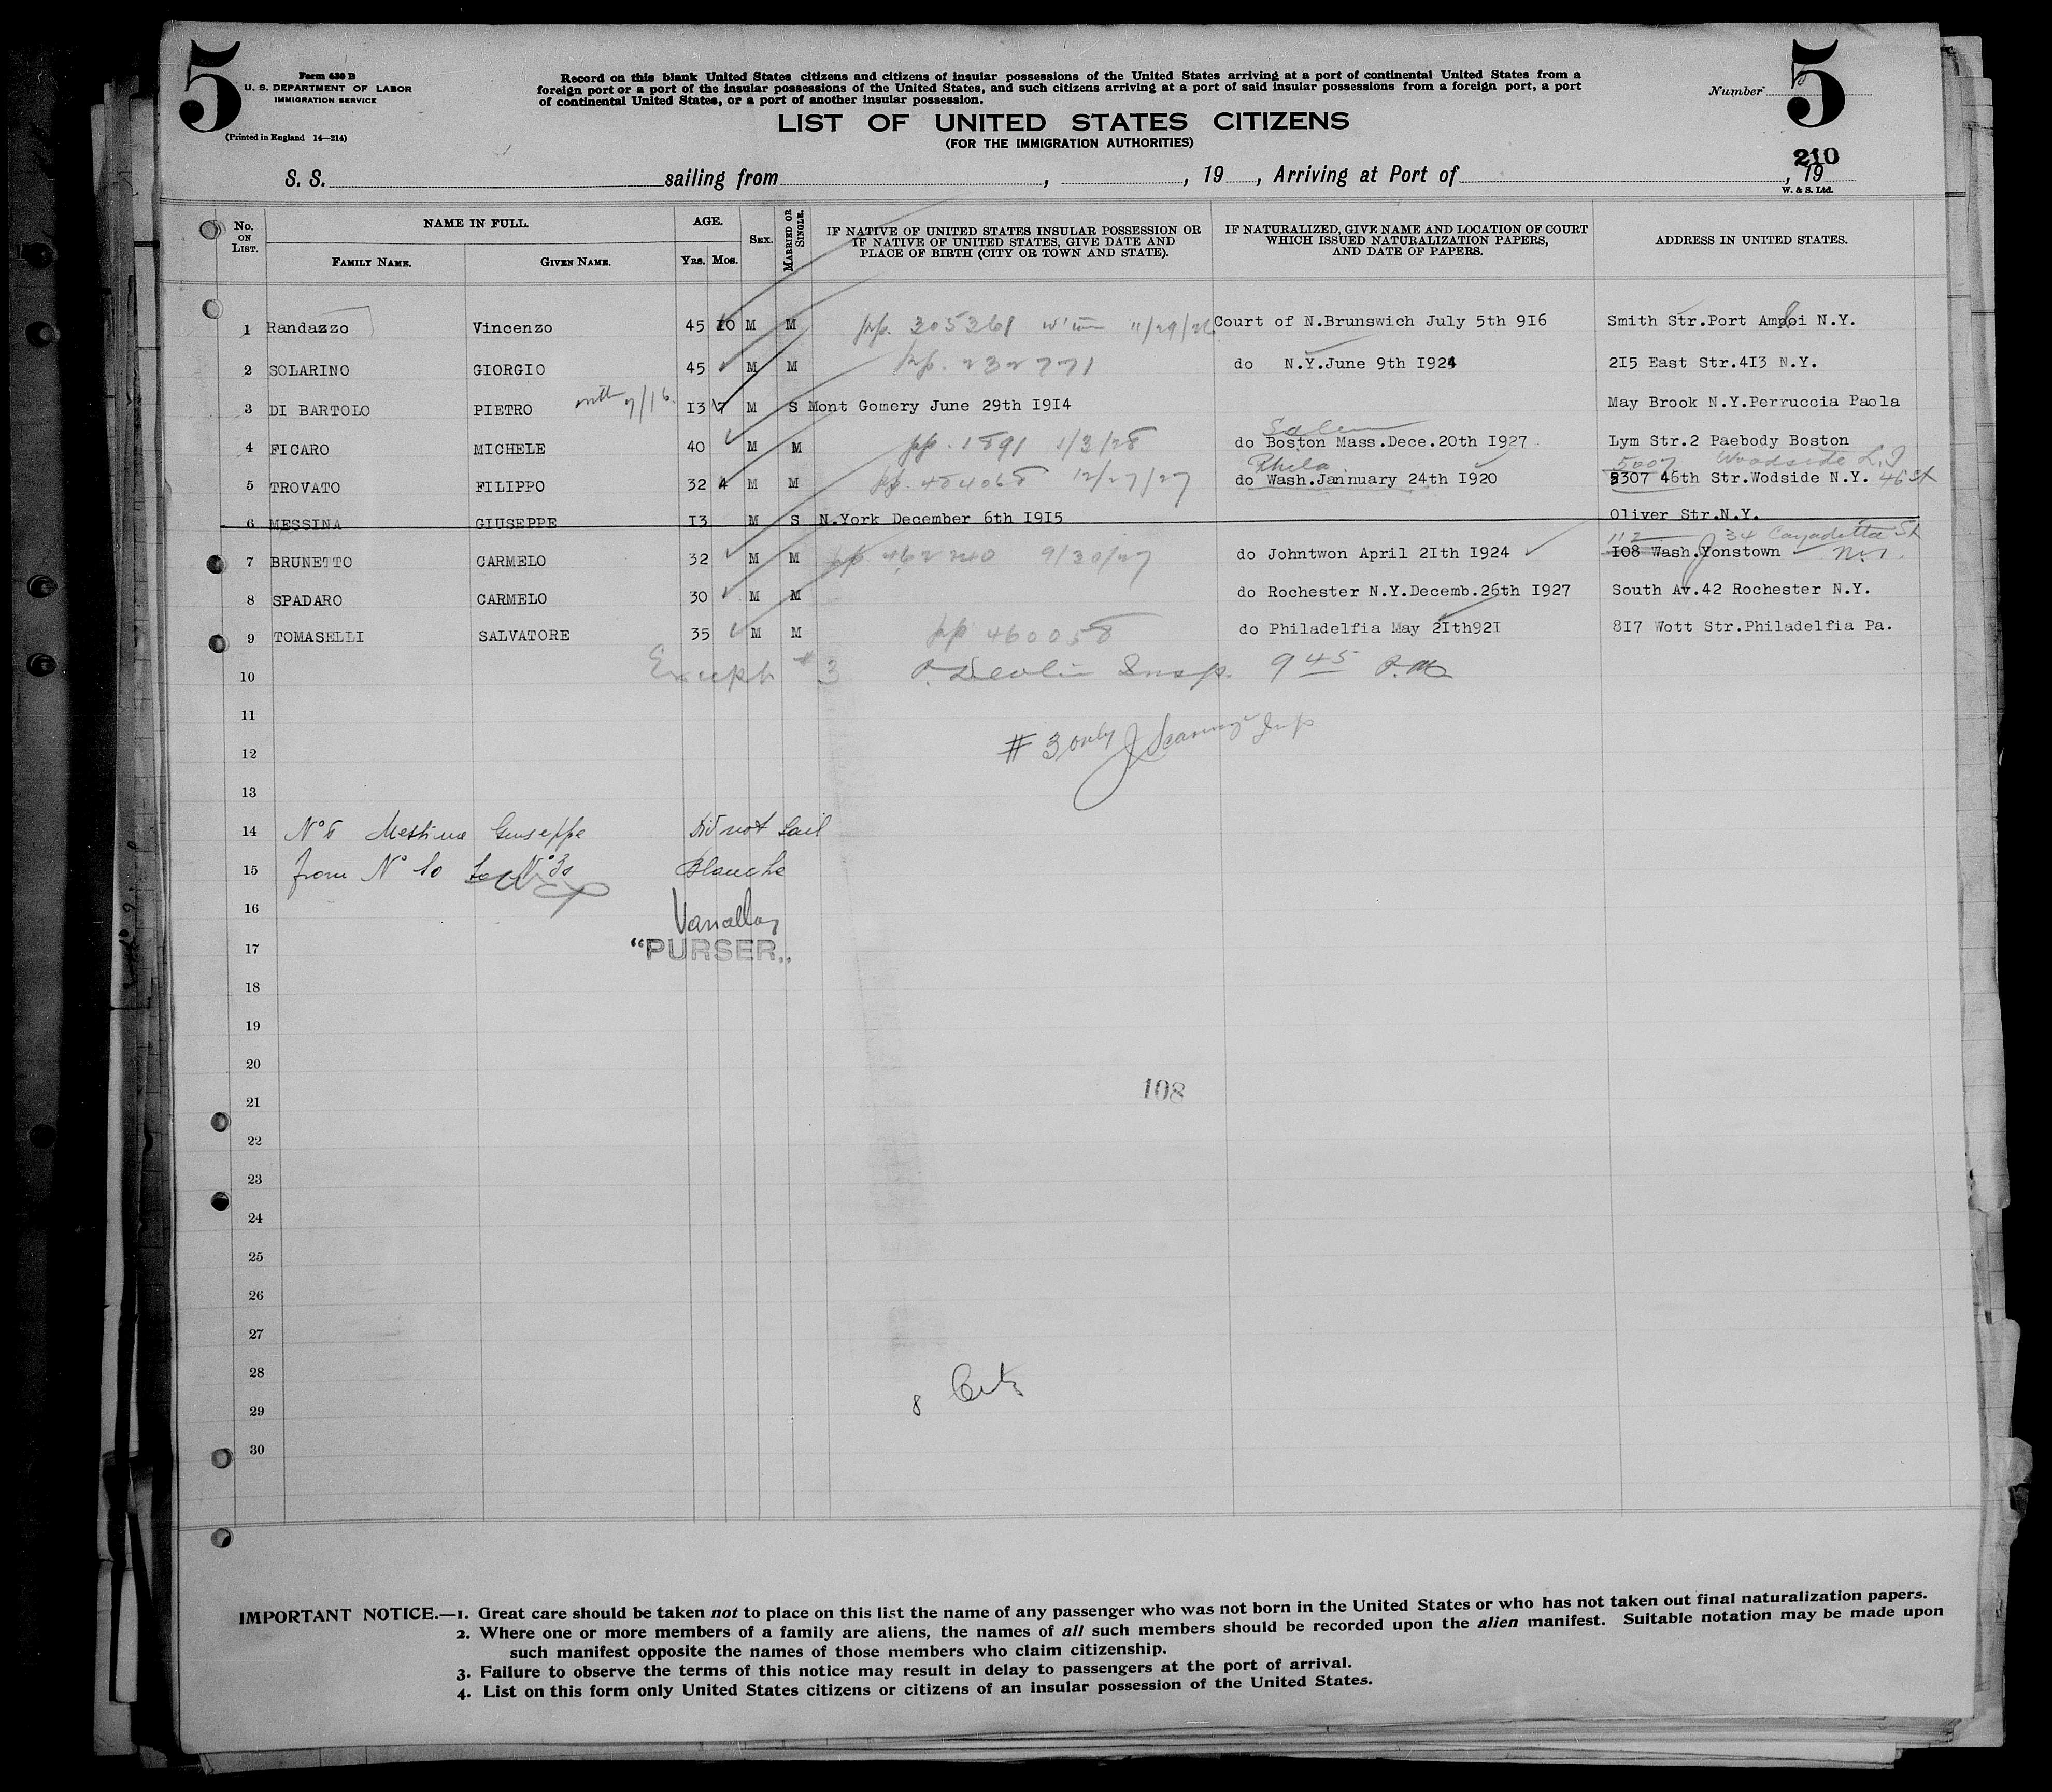 5
Form 630 B
U. S. DEPARTMENT OF LABOR
IMMIGRATION SERVICE
(Printed in England 14—214)
Record on this blank United States citizens and citizens of insular possessions of the United States arriving at a port of continental United States from a
foreign port or a port of the insular possessions of the United States, and such citizens arriving at a port of said insular possessions from a foreign port, a port
of continental United States, or a port of another insular possession.
LIST OF UNITED STATES CITIZENS
(FOR THE IMMIGRATION AUTHORITIES)
Number
5
210
S. S. sailing from , , 19 , Arriving at Port of , 19
W. & S. Ltd.
No. ON LIST.
NAME IN FULL.
FAMILY NAME. GIVEN NAME.
AGE.
YRS. MOS.
SEX.
MARRIED OR SINGLE.
IF NATIVE OF UNITED STATES INSULAR POSSESSION OR
IF NATIVE OF UNITED STATES, GIVE DATE AND
PLACE OF BIRTH (CITY OR TOWN AND STATE).
IF NATURALIZED, GIVE NAME AND LOCATION OF COURT
WHICH ISSUED NATURALIZATION PAPERS,
AND DATE OF PAPERS.
ADDRESS IN UNITED STATES.
1 Randazzo Vincenzo 45 10 M M pp. 305361 11/29/26 Court of N.Brunswich July 5th 916 Smith Str.Port Ampoi N.Y.
2 SOLARINO GIORGIO 45 M M pp. 232771 do N.Y.June 9th I924 2I5 East Str.4I3 N.Y.
3 DI BARTOLO PIETRO with 7/16. I3 7 M S Mont Gomery June 29th I9I4 May Brook N.Y.Perruccia Paola
Salem
4 FICARO MICHELE 40 M M pp. 1891 1/3/28 do Boston Mass.Dece.20th I927 Lym Str.2 Paebody Boston
Phila. 5007 Woodside L.I
5 TROVATO FILIPPO 32 4 M M pp. 484068 12/27/27 do Wash.Jannuary 24th I920 8307 46th Str.Wodside N.Y. 46 St
6 MESSINA GIUSEPPE I3 M S N.York December 6th I9I5 Oliver Str.N.Y.
112 34 Cayadetta St
7 BRUNETTO CARMELO 32 M M pp 462240 9/30/27 do Johntwon April 2Ith I924 I08 Wash.Yonstown N.Y.
8 SPADARO CARMELO 30 M M do Rochester N.Y.Decemb.26th I927 South Av.42 Rochester N.Y.
9 TOMASELLI SALVATORE 35 M M pp 460058 do Philadelfia May 2Ith92I 8I7 Wott Str.Philadelfia Pa.
10 Except #3 P. Devlin Insp. 9 45 P.M
11
12 # 3 only Insp
13
14 Nº 6 Messina Giuseppe Did not Sail
15 from Nº 10 to Nº 30 Blanche
16
17 "PURSER„
18
19
20
21 108
22
23
24
25
26
27
28
8 Cits
29
30
IMPORTANT NOTICE.—1. Great care should be taken not to place on this list the name of any passenger who was not born in the United States or who has not taken out final naturalization papers.
2. Where one or more members of a family are aliens, the names of all such members should be recorded upon the alien manifest. Suitable notation may be made upon
such manifest opposite the names of those members who claim citizenship.
3. Failure to observe the terms of this notice may result in delay to passengers at the port of arrival.
4. List on this form only United States citizens or citizens of an insular possession of the United States.